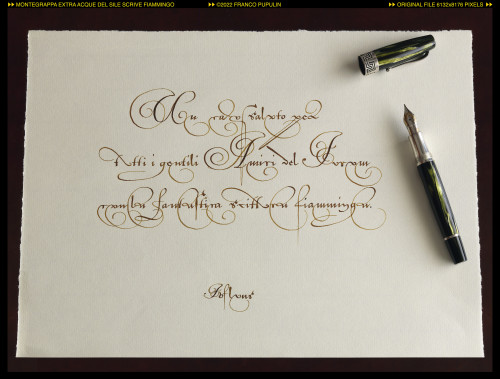 MONTEGRAPPA EXTRA ACQUE DEL SILE SCRIVE FIAMMINGO
©2022 FRANCO PUPULIN
ORIGINAL FILE 8132x8176 PIXELS
Un caro saluto per
tutti i gentili Amici del Forum
con la fantastica scrittura fiamminga.